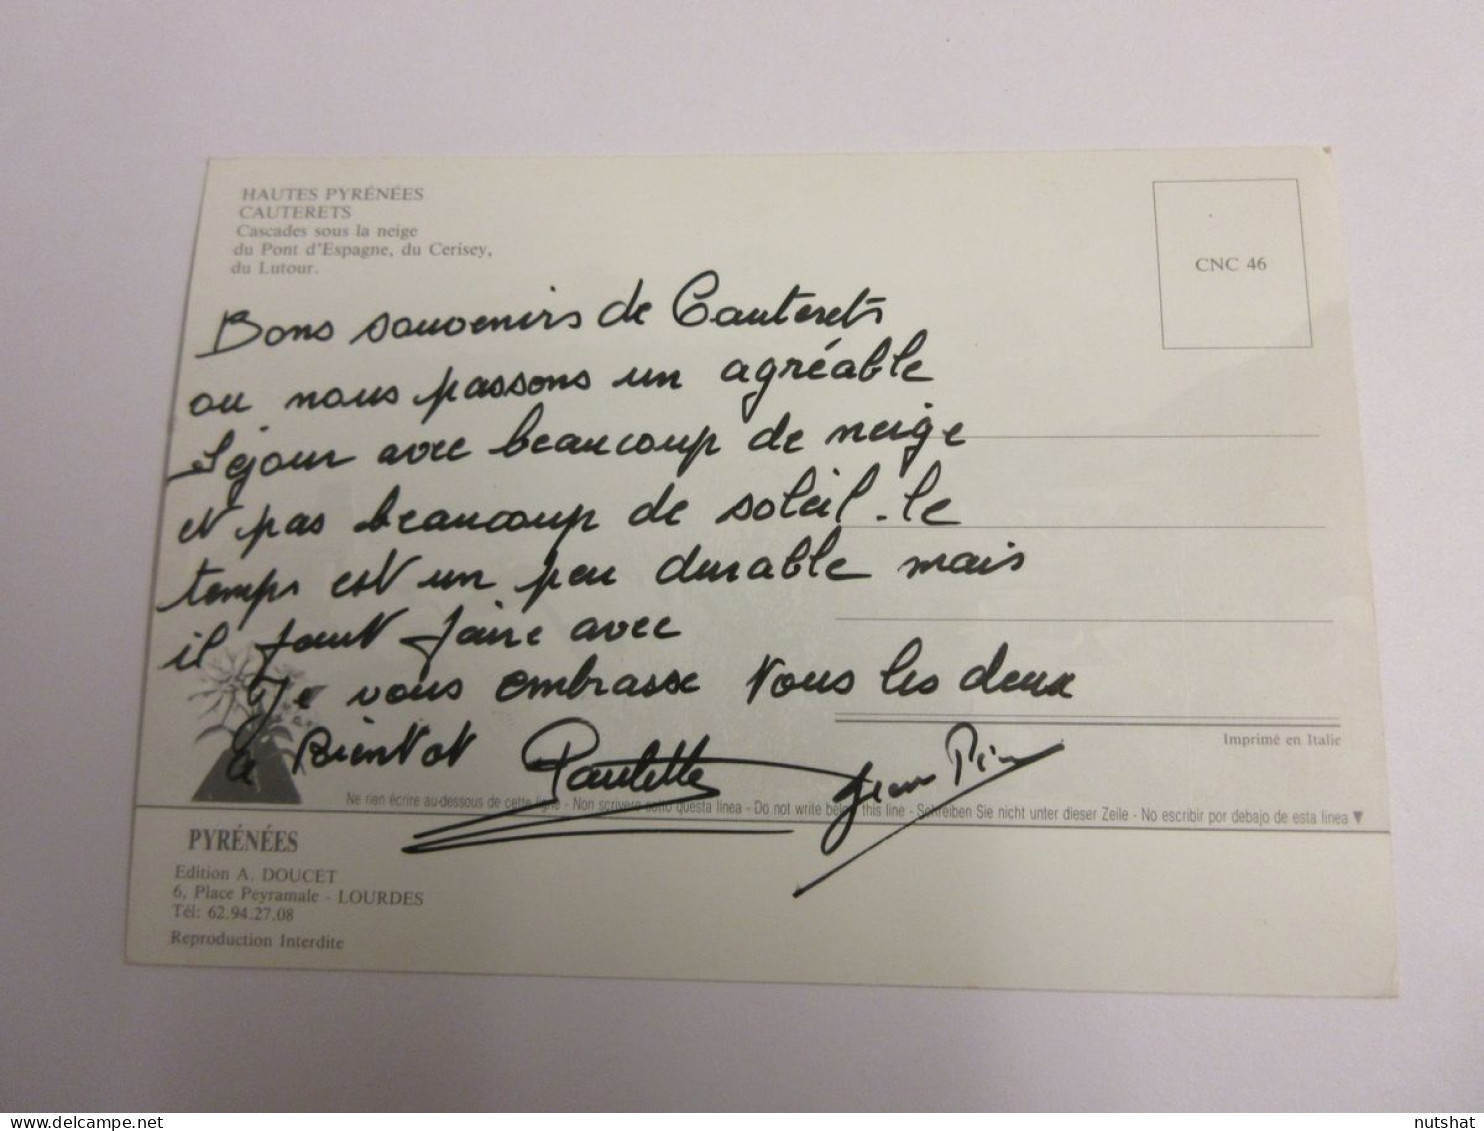 HAUTES PYRÉNÉES
CAUTERETS
Cascades sous la neige
du Pont d'Espagne, du Cerisey,
du Lutour.
CNC 46
Bons souvenirs de Cauterets
ou nous passons un agréable
Séjour avec beaucoup de neige
et pas beaucoup de soleil. le
temps est un peu durable mais
il faut faire avec
Je vous embrasse tous les deux
a Bientot Paulette Jean
Imprimé en Italie
Ne rien écrire au-dessous de cette ligne - Non scrivere sotto questa linea - Do not write below this line - Schreiben Sie nicht unter dieser Zeile - No escribir por debajo de esta linea ▼
PYRÉNÉES
Edition A. DOUCET
6, Place Peyramale - LOURDES
Tél: 62.94.27.08
Reproduction Interdite
www.delcampe.net
nutshat